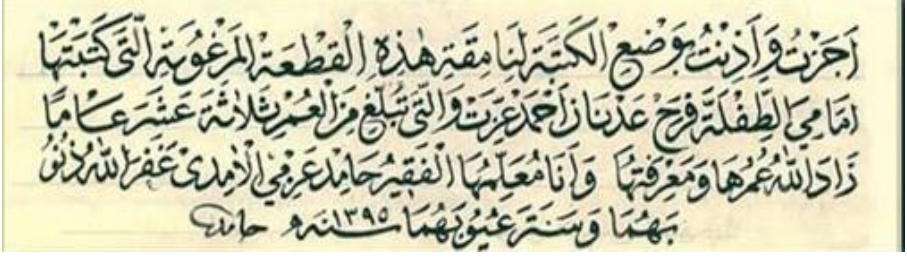 اَجَزْتُ وَاَذِنْتُ بِوَضْعِ الكَتَبَةِ لِنَامِقَةِ هٰذِهِ الْقِطْعَةِ الْمَرْغُوبَةِ الَّتِى كَتَبَتْهَا
اَمَامِي الطِّفْلَةِ فَرَحْ عَدْنَانْ اَحْمَدْ عِزَّتْ وَالَّتِى تَبْلُغُ مِنَ الْعُمْرِ ثَلَاثَةَ عَشَرَ عَامًا
زَادَ اللهُ عُمْرَهَا وَمَعْرِفَتَهَا وَاَنَا مُعَلِّمُهَا الْفَقِيرُ حَامِدْ عَزْمِي الْاٰمِدِىْ غَفَرَ اللهُ ذُنُو
بَهُمَا وَسَتَرَ عُيُوبَهُمَا سنه ١٣٩٥ حامد